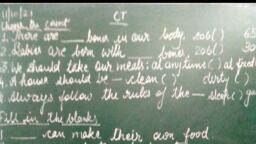 11/10/21 CT
Choose the correct
1. There are ___ bones in our body. 206( ) 63
2. Babies are born with ___ bones. 206( ) 30
3. We should take our meals: at any time( ) at fixed
4. A house should be — clean( ) dirty( )
5. Always follow the rules of the —
Fill in the blanks
1. ___ can make their own food